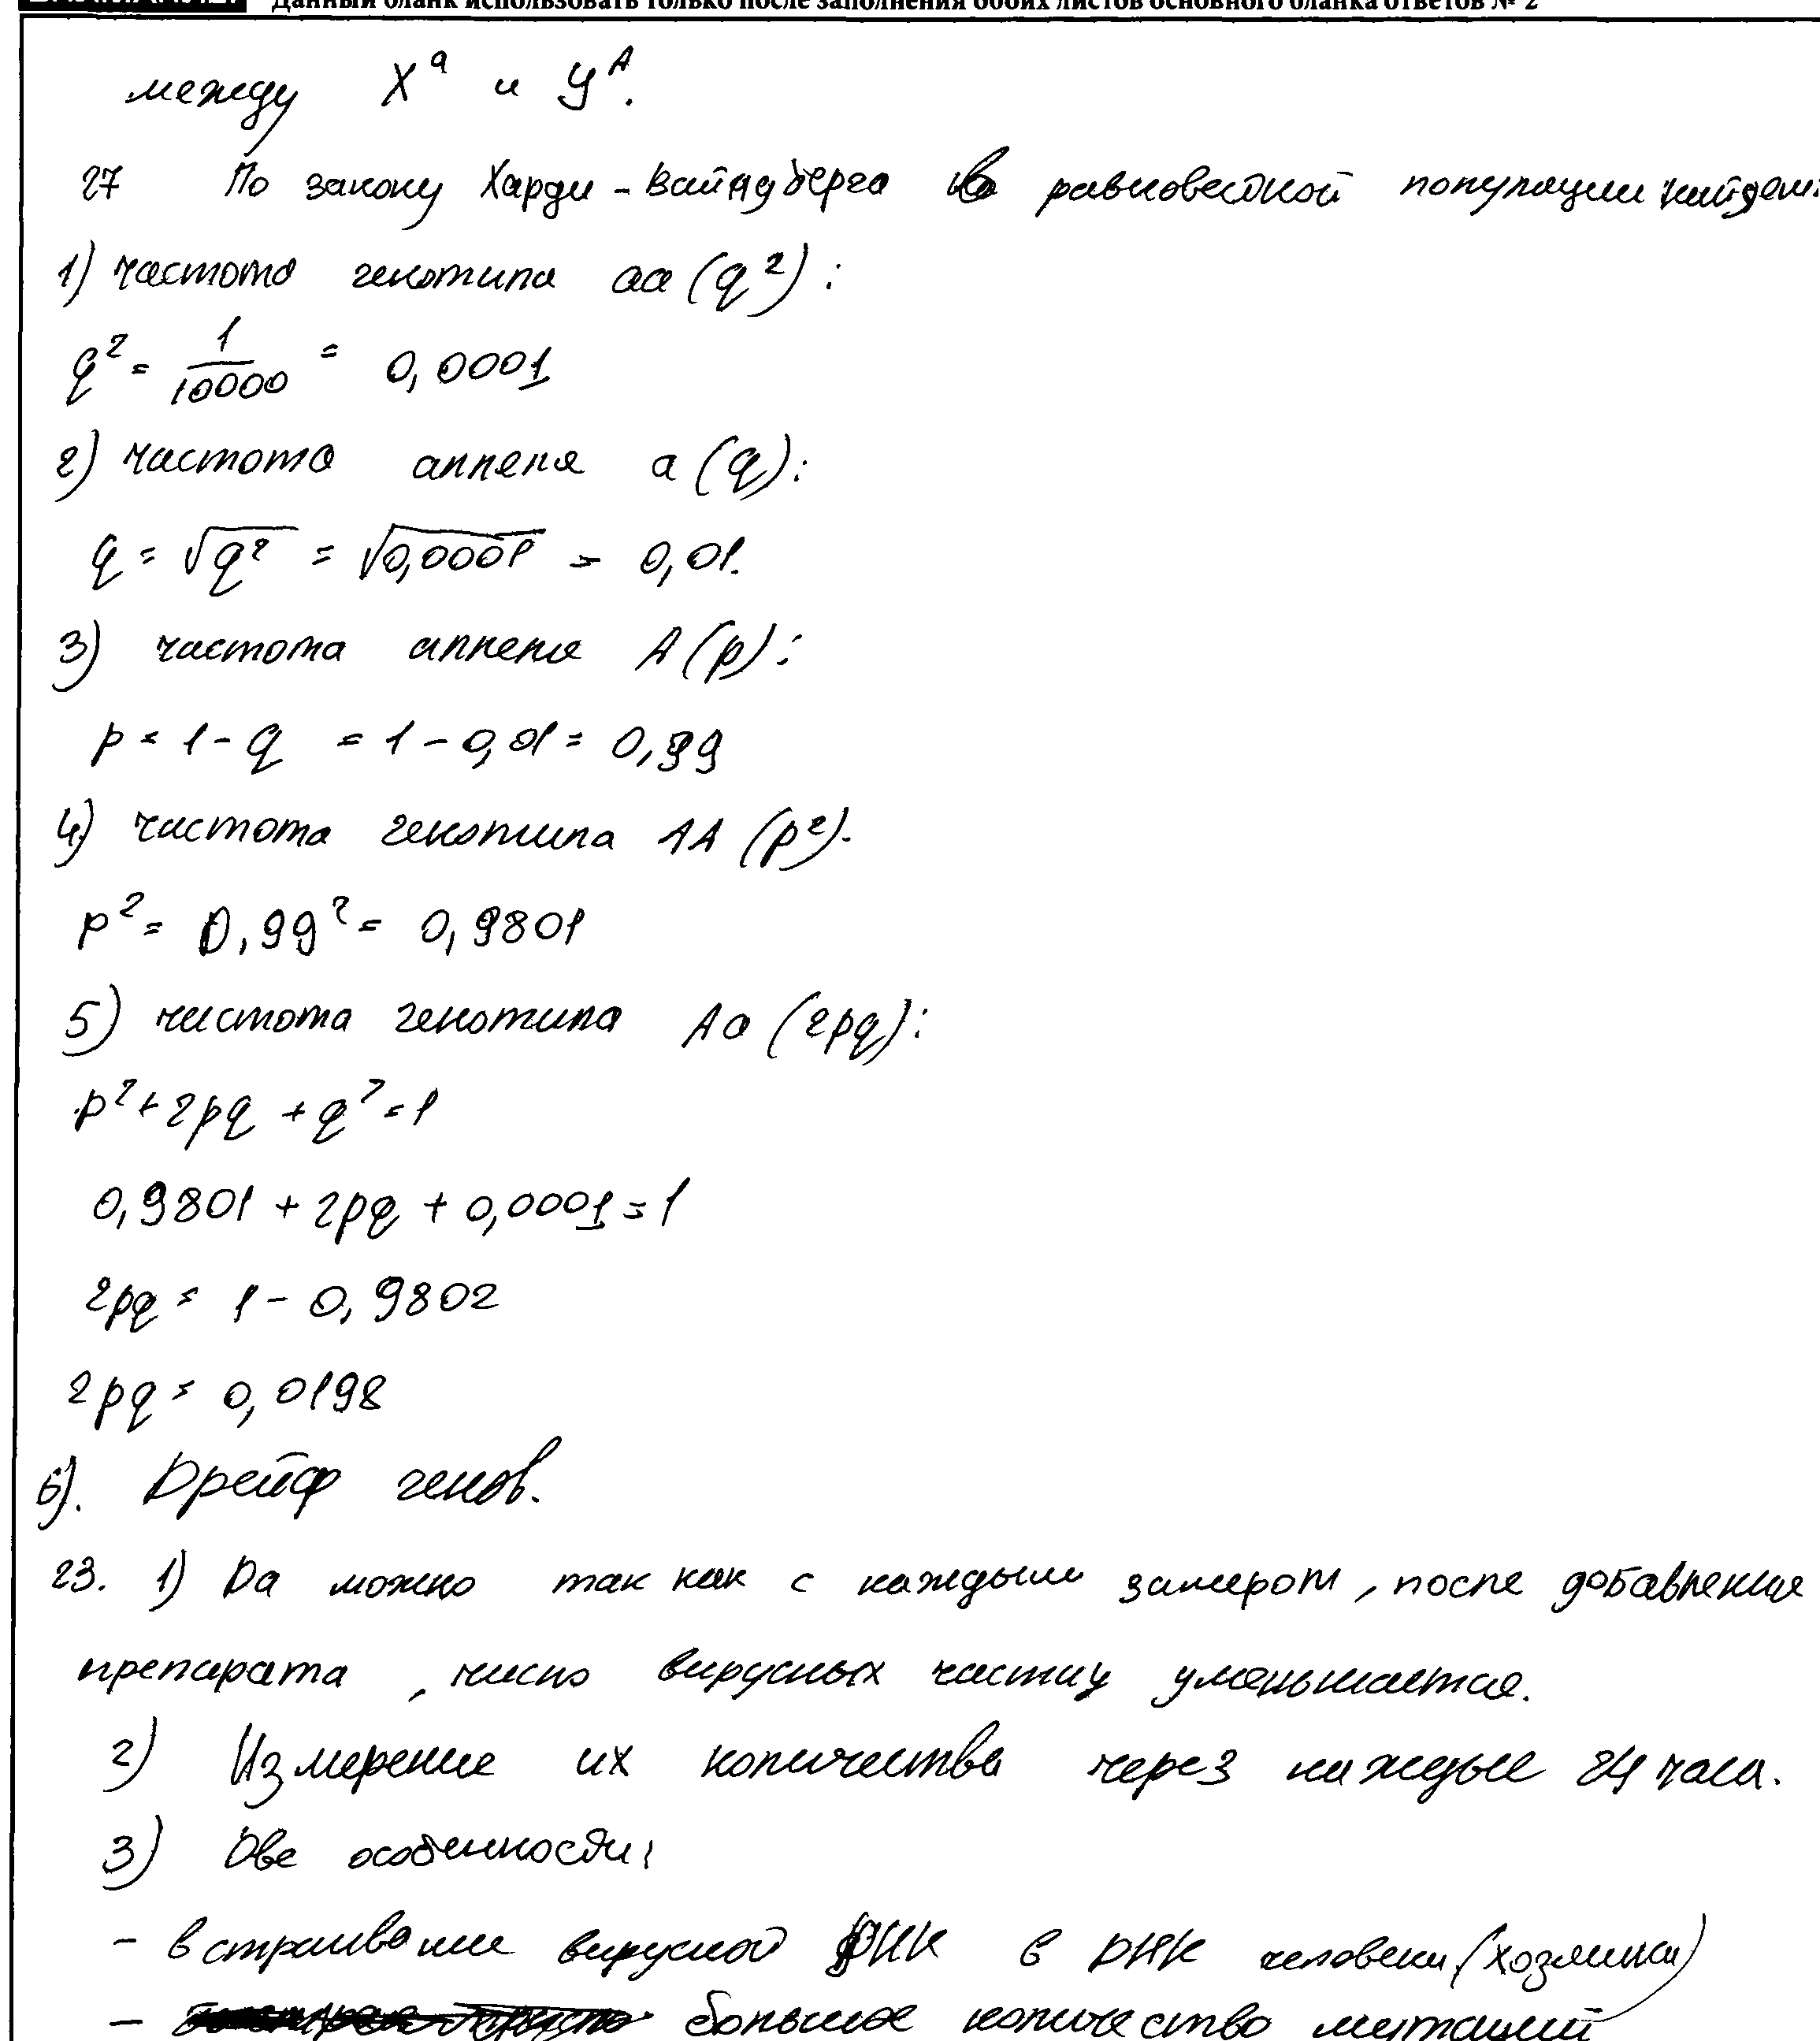 Данный бланк использовать только после заполнения обоих листов основного бланка ответов № 2
между X^a и У^A.
27 По закону Харди - Вайндберга в равновесной популяции найдем:
1) частота генотипа aa (q²):
q² = 1/10000 = 0,0001
2) частота аллеля a (q):
q = √q² = √0,0001 = 0,01.
3) частота аллеля A (p):
p = 1 - q = 1 - 0,01 = 0,99
4) частота генотипа AA (p²).
p² = 0,99² = 0,9801
5) частота генотипа Aa (2pq):
p² + 2pq + q² = 1
0,9801 + 2pq + 0,0001 = 1
2pq = 1 - 0,9802
2pq = 0,0198
6). Дрейф генов.
23. 1) Да можно так как с каждым замером, после добавления
препарата, число вирусных частиц уменьшается.
2) Измерение их количества через каждые 24 часа.
3) Две особенности:
- встраивание вирусной РНК в ДНК человека (хозяина)
- большое количество мутаций